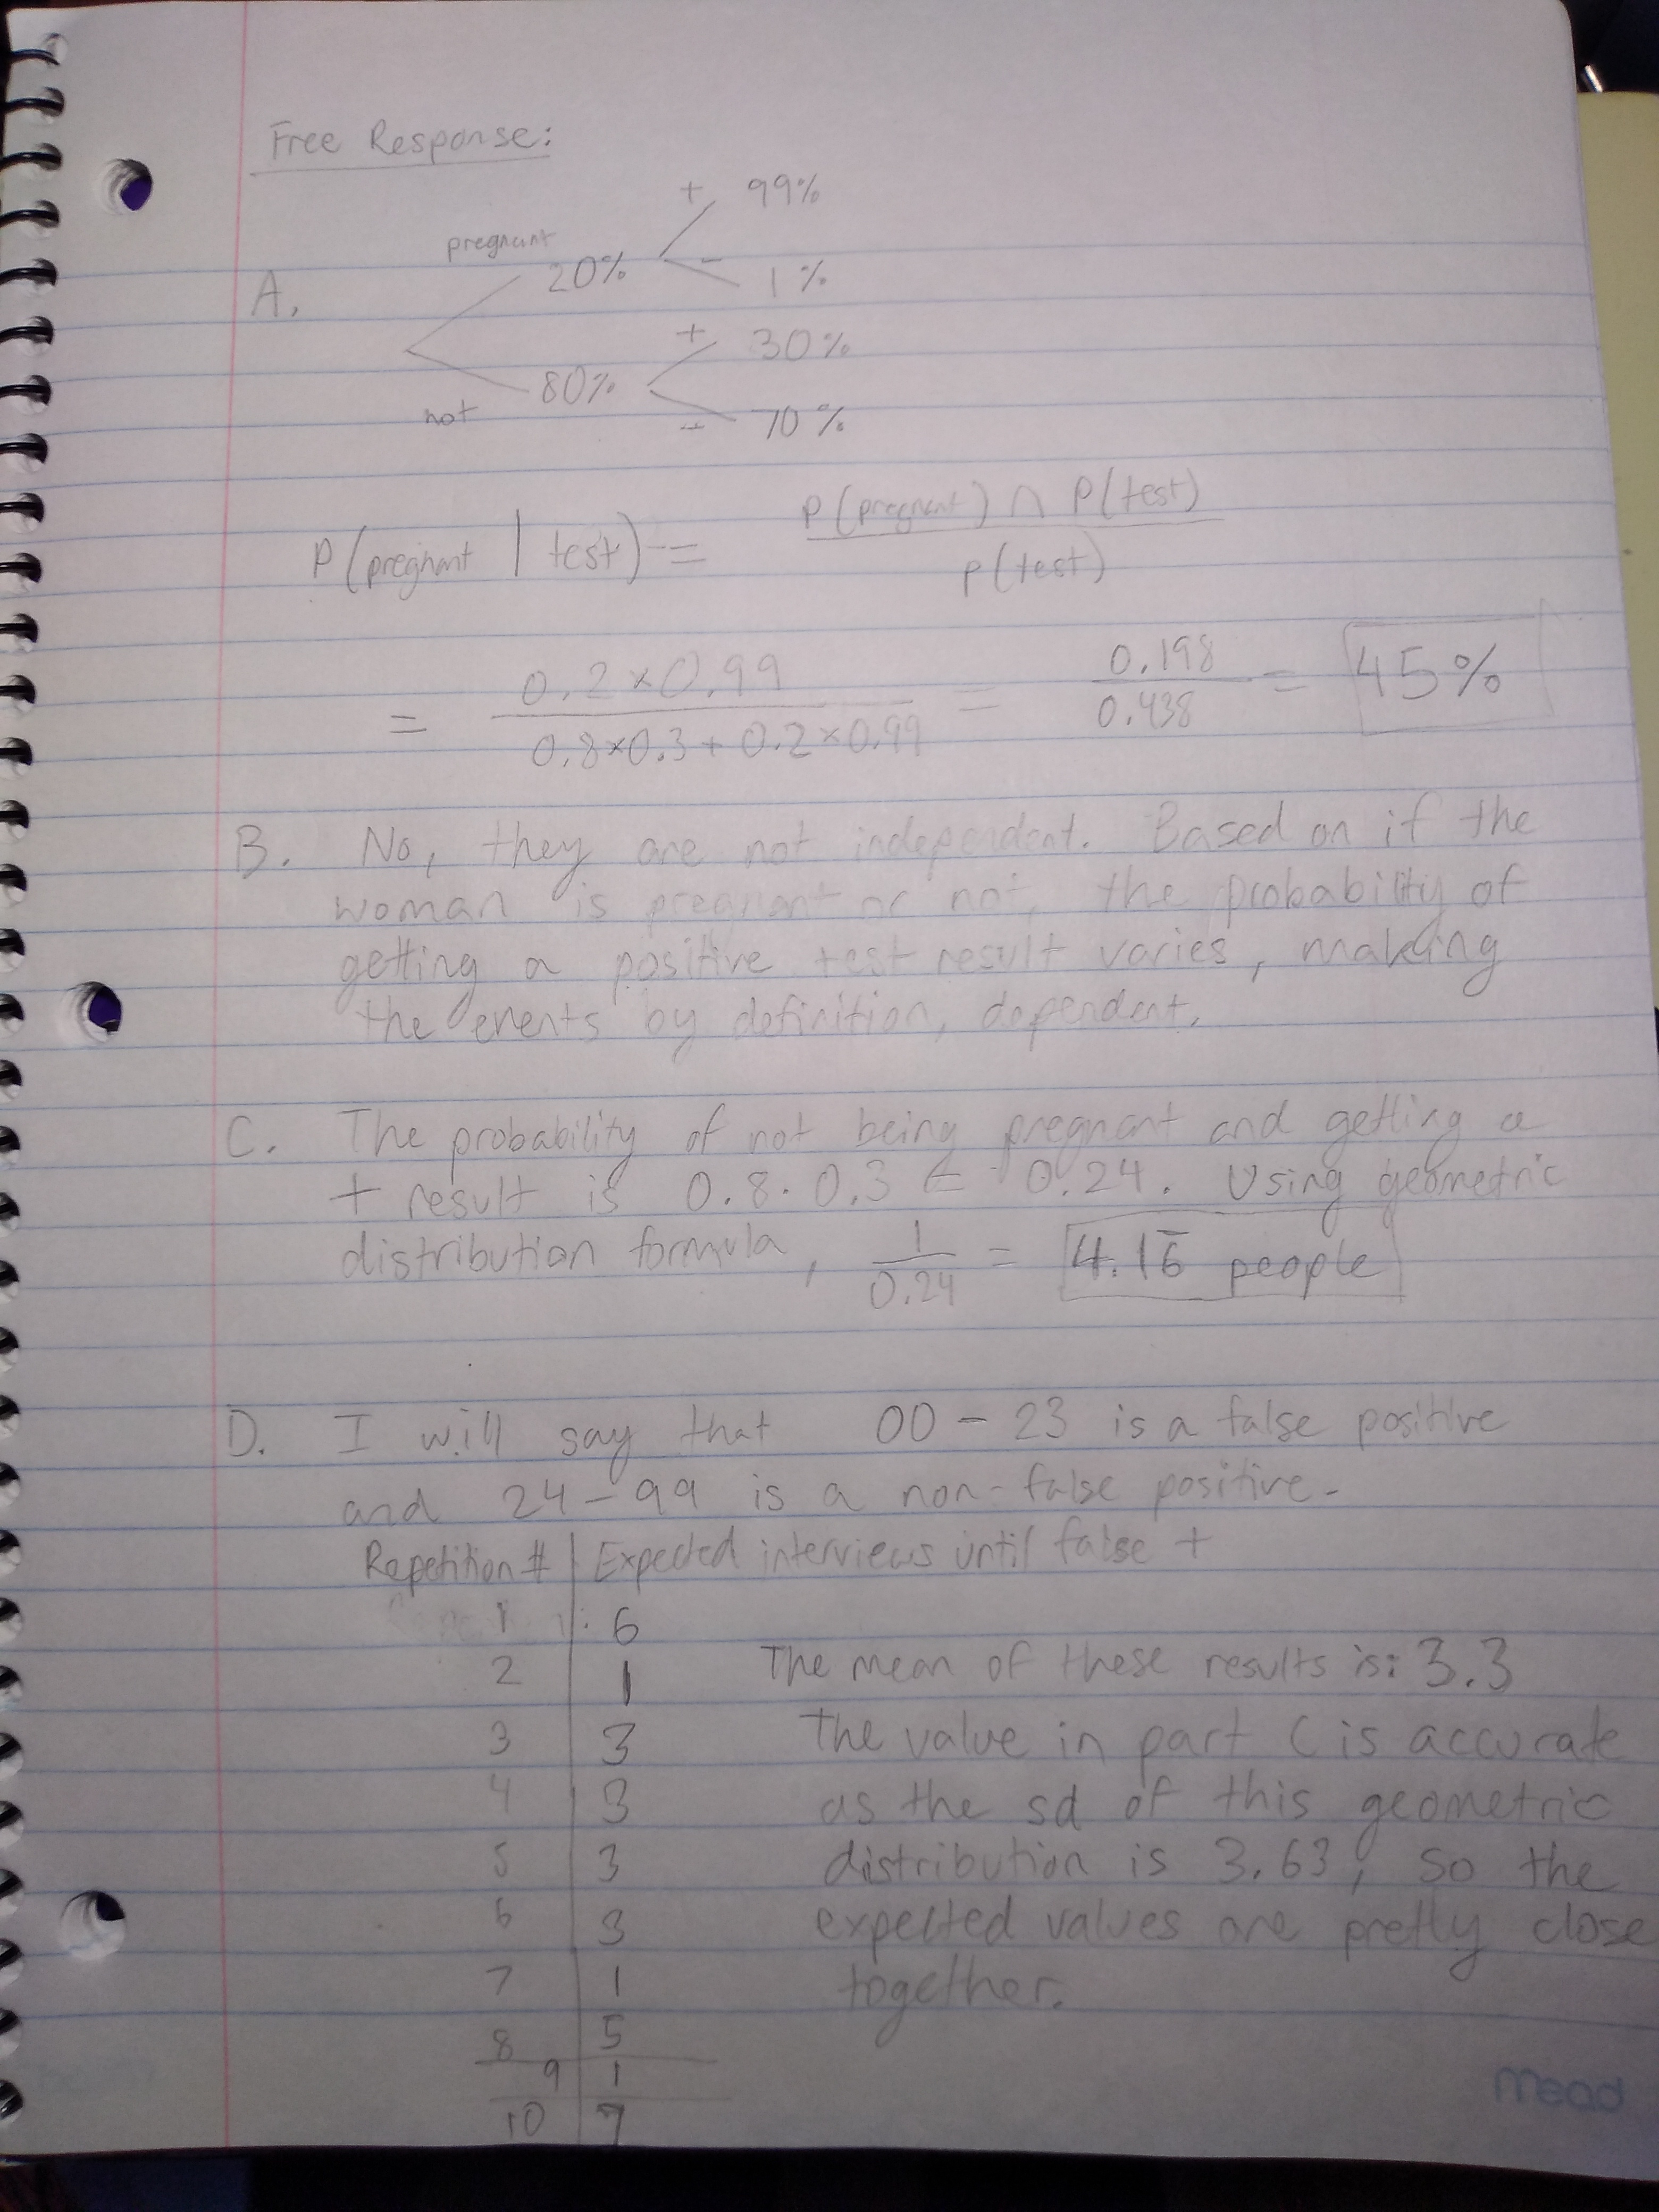 Free Response:
A.
pregnant 20% + 99%
- 1%
not 80% + 30%
- 70%
P(pregnant | test) = P(pregnant) ∩ P(test) / P(test)
= 0.2×0.99 / 0.8×0.3 + 0.2×0.99 = 0.198 / 0.438 = 45%
B. No, they are not independent. Based on if the
woman is pregnant or not, the probability of
getting a positive test result varies, making
the events by definition, dependent.
C. The probability of not being pregnant and getting a
+ result is 0.8 · 0.3 = 0.24. Using geometric
distribution formula, 1/0.24 = 4.16̅ people
D. I will say that 00 - 23 is a false positive
and 24 - 99 is a non-false positive.
Repetition # | Expected interviews until false +
1 6
2 1
3 3
4 3
5 3
6 3
7 1
8 5
9 1
10 7
The mean of these results is: 3.3
The value in part C is accurate
as the sd of this geometric
distribution is 3.63, so the
expected values are pretty close
together.
Mead